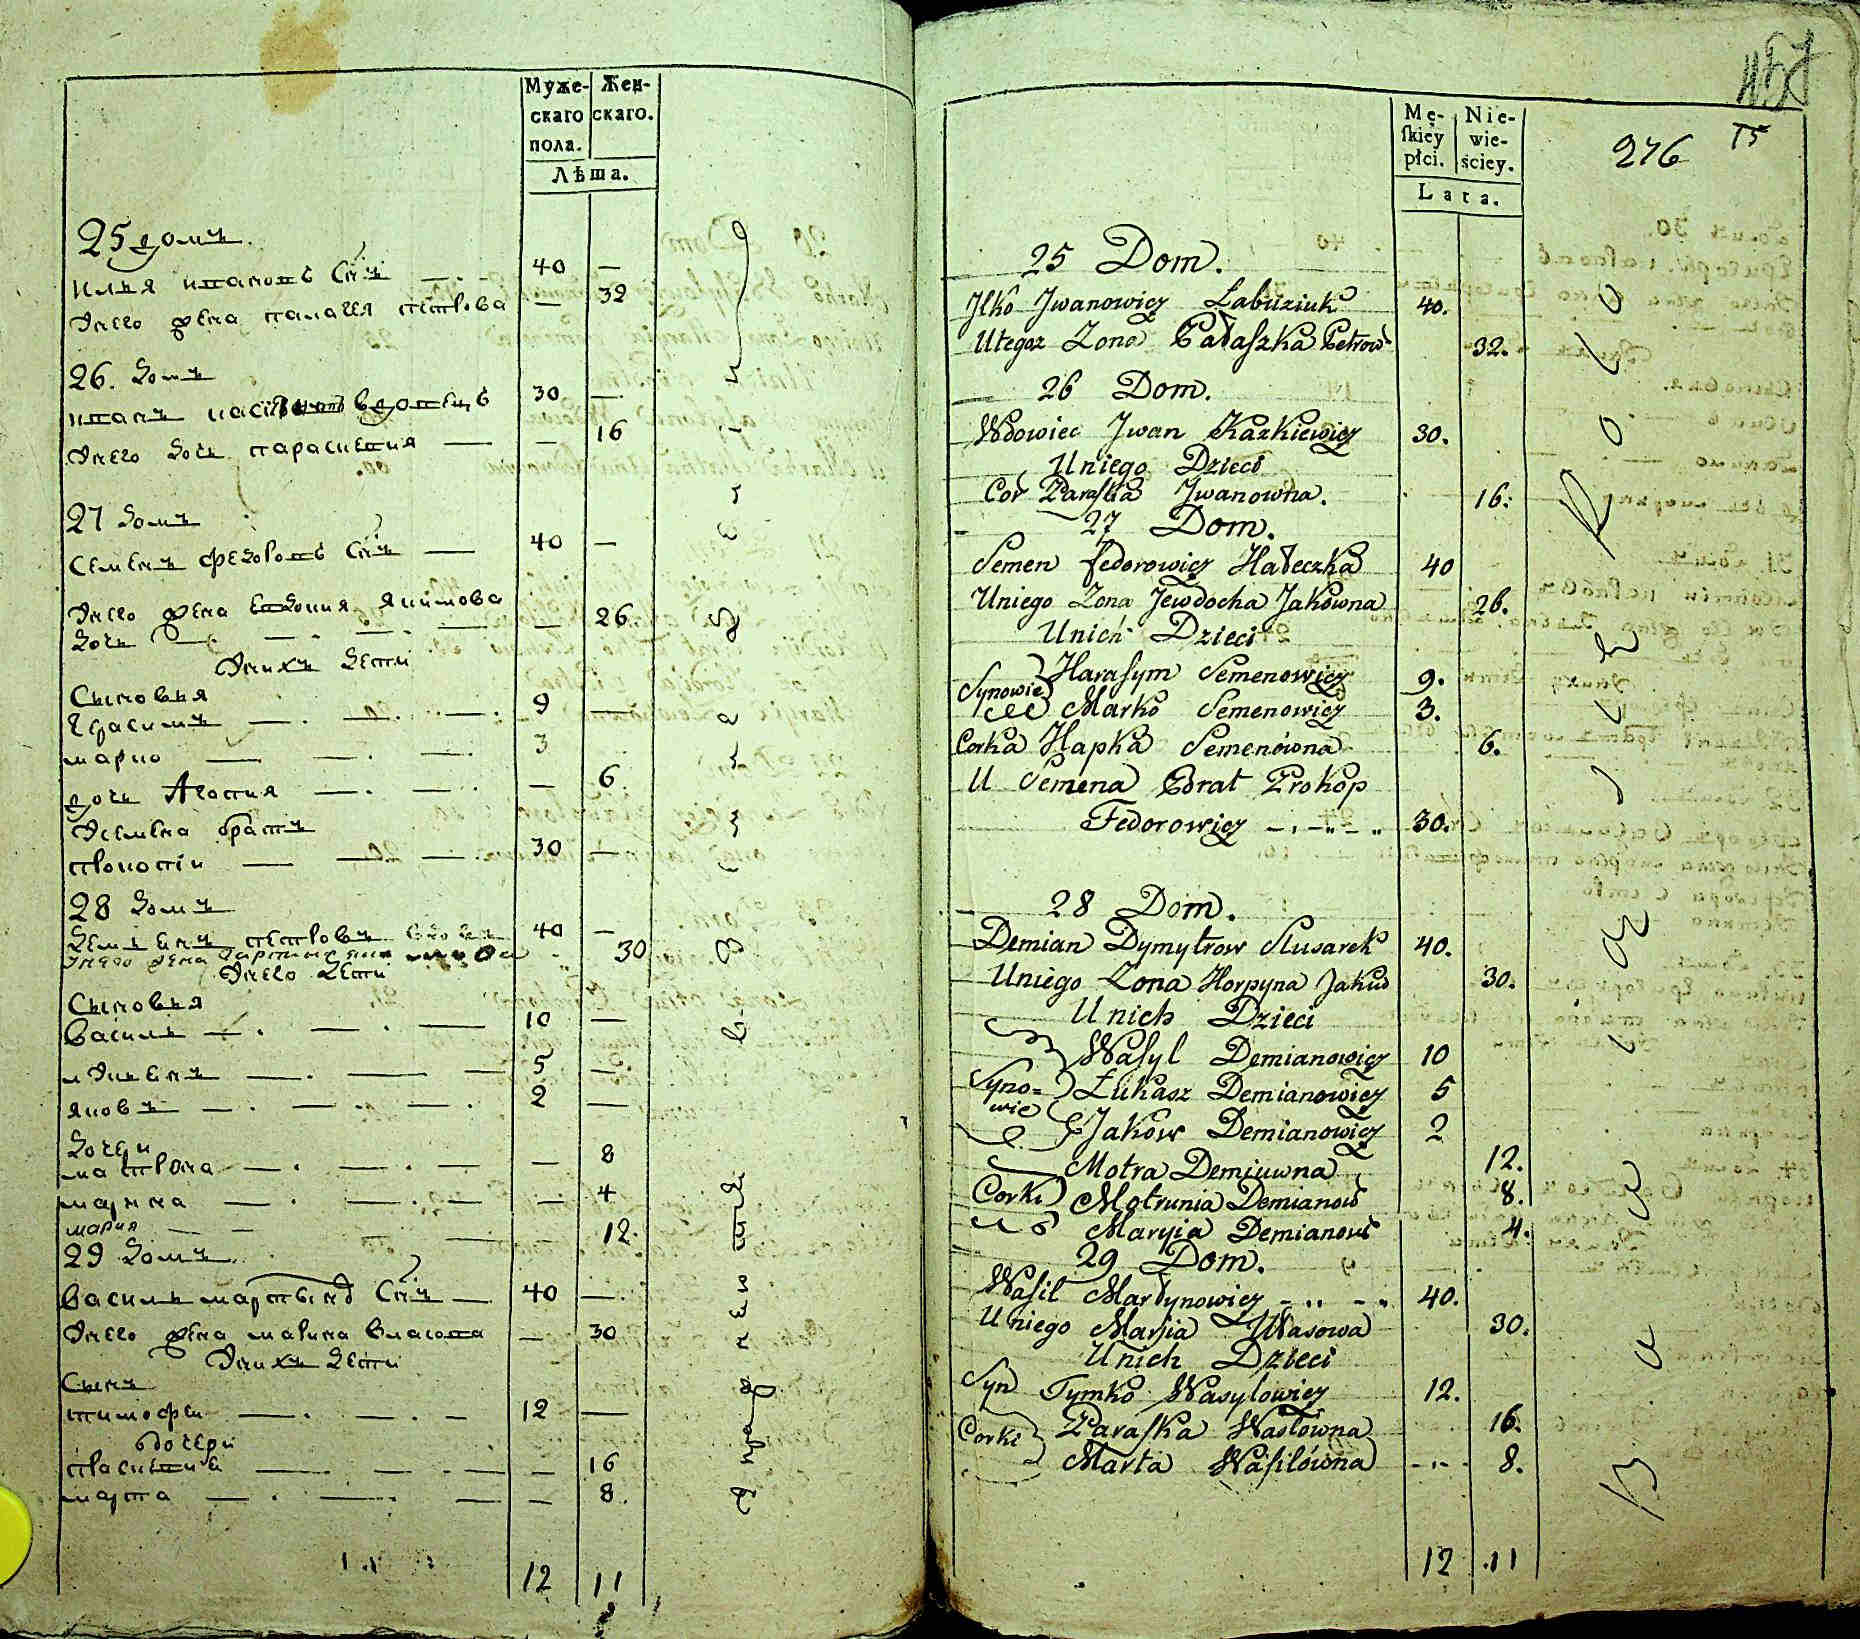 Муже-
скаго
пола.
Жен-
скаго.
Лѣта.
25 домъ.
Илья Ивановъ Снъ 40 —
У него жена Палагея Петрова — 32
26. домъ
Иванъ вдовецъ 30 —
У него дочь Парасковия — 16
27 домъ
Семенъ Федоровъ Снъ 40 —
У него жена Евдокия Якимова — 26
дочь
У нихъ дети
Сыновья
Герасимъ 9 —
Марко 3
дочь Агапия — 6
У Семена братъ
Прокопiй 30 —
28 домъ
Демиянъ Петровъ 40 —
У него жена 30
У него дети
Сыновья
Василь 10 —
5 —
Яковъ 2 —
дочери
Матрона — 8
Марина — 4
Мария 12.
29 домъ.
Василь Мартыновъ Снъ 40 —
У него жена Марина Власова — 30
У нихъ дети
Сынъ
Тимофей 12 —
дочери
Парасковия — 16
Марта — 8.
12 11
Mę-
ſkiey
płci.
Nie-
wie-
ściey.
Lata.
276
75
25 Dom.
Jlko Jwanowicz Łabuziuk 40.
Utegoz Zona Pałaſzka Petrow 32.
26 Dom.
Wdowiec Jwan Kazkiewicz 30.
Uniego Dzieci
Cor Paraſka Jwanowna. 16.
27 Dom.
Semen Fedorowicz Hałeczka 40
Uniego Zona Jewdocha Jakowna 26.
Unich Dzieci
Synowie Haraſym Semenowicz 9.
Marko Semenowicz 3.
Corka Hapka Semenówna 6.
U Semena Brat Prokop
Fedorowicz 30.
28 Dom.
Demian Dymytrow Slusarek 40.
Uniego Zona Horpyna Jakub 30.
Unich Dzieci
Waſyl Demianowicz 10
Syno=
wie
Łukasz Demianowicz 5
Jakow Demianowicz 2
Motra Demiuwna 12.
Corki Motrunia Demianow 8.
Maryia Demianow 4.
29 Dom.
Waſil Martynowicz 40.
Uniego Marjia Własowa 30.
Unich Dzieci
Syn Tymko Wasylowicz 12.
Corki Paraſka Wasłowna 16.
Marta Waſilówna 8.
12 11